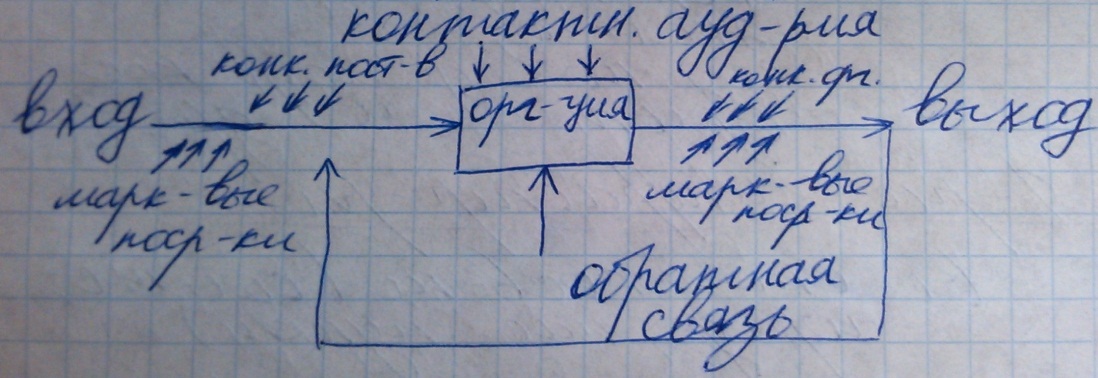 контактн. ауд-рия
конк. пост-в
конк. фг.
вход
орг-ция
выход
марк-вые
поср-ки
марк-вые
поср-ки
обратная
связь